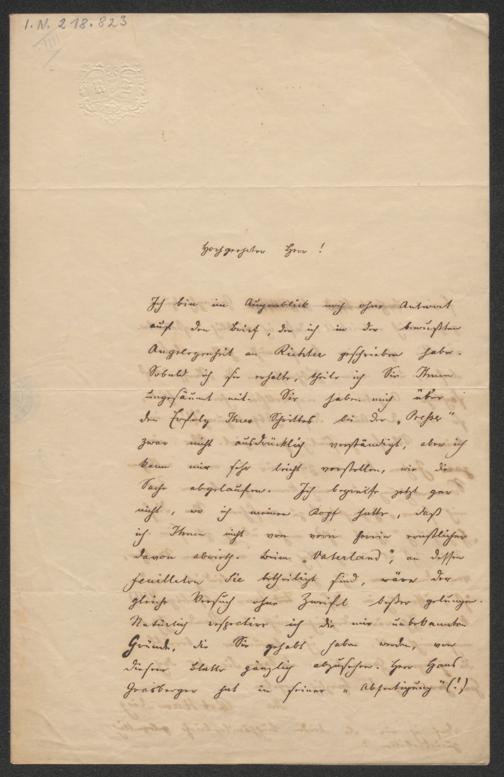 I. N. 218.823
Hochgeehrter Herr!
Ich bin im Augenblick noch ohne Antwort
auf den Brief, den ich in der bewußten
Angelegenheit an Richter geschrieben habe.
Sobald ich sie erhalte, theile ich Sie Ihnen
ungesäumt mit. Sie haben mich über
den Erfolg Ihres Schrittes bei der „Presse"
zwar nicht ausdrücklich verständigt, aber ich
kann mir sehr leicht vorstellen, wie die
Sache abgelaufen. Ich begreife jetzt gar
nicht, wo ich meinen Kopf hatte, daß
ich Ihnen nicht von vorn herein ernstlicher
davon abrieth. Beim „Vaterland", an dessen
Feuilleton Sie betheiligt sind, wäre der
gleiche Versuch ohne Zweifel besser gelungen.
Natürlich respectire ich die mir unbekannten
Gründe, die Sie gehabt haben werden, von
diesem Blatte gänzlich abzusehen. Herr Hans
Grasberger hat in seiner „Abfertigung" (!)